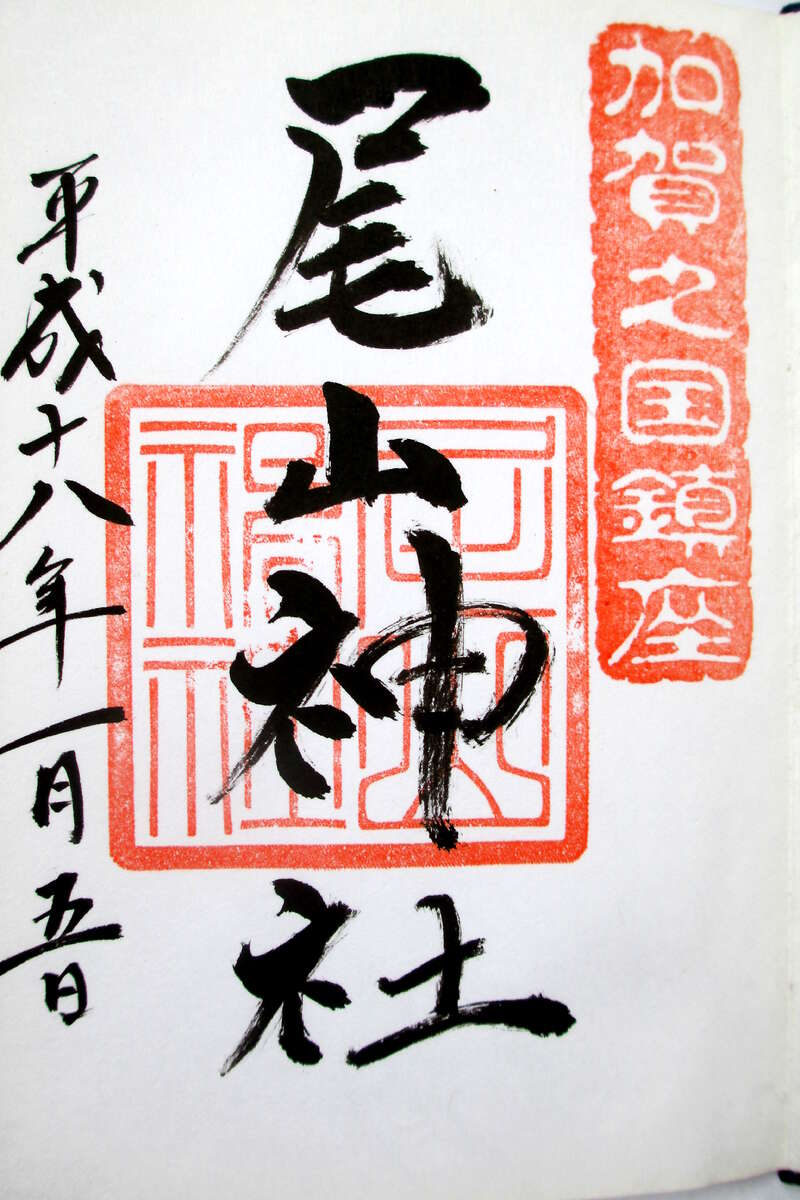 加賀之国鎮座
尾山神社
平成十八年一月五日